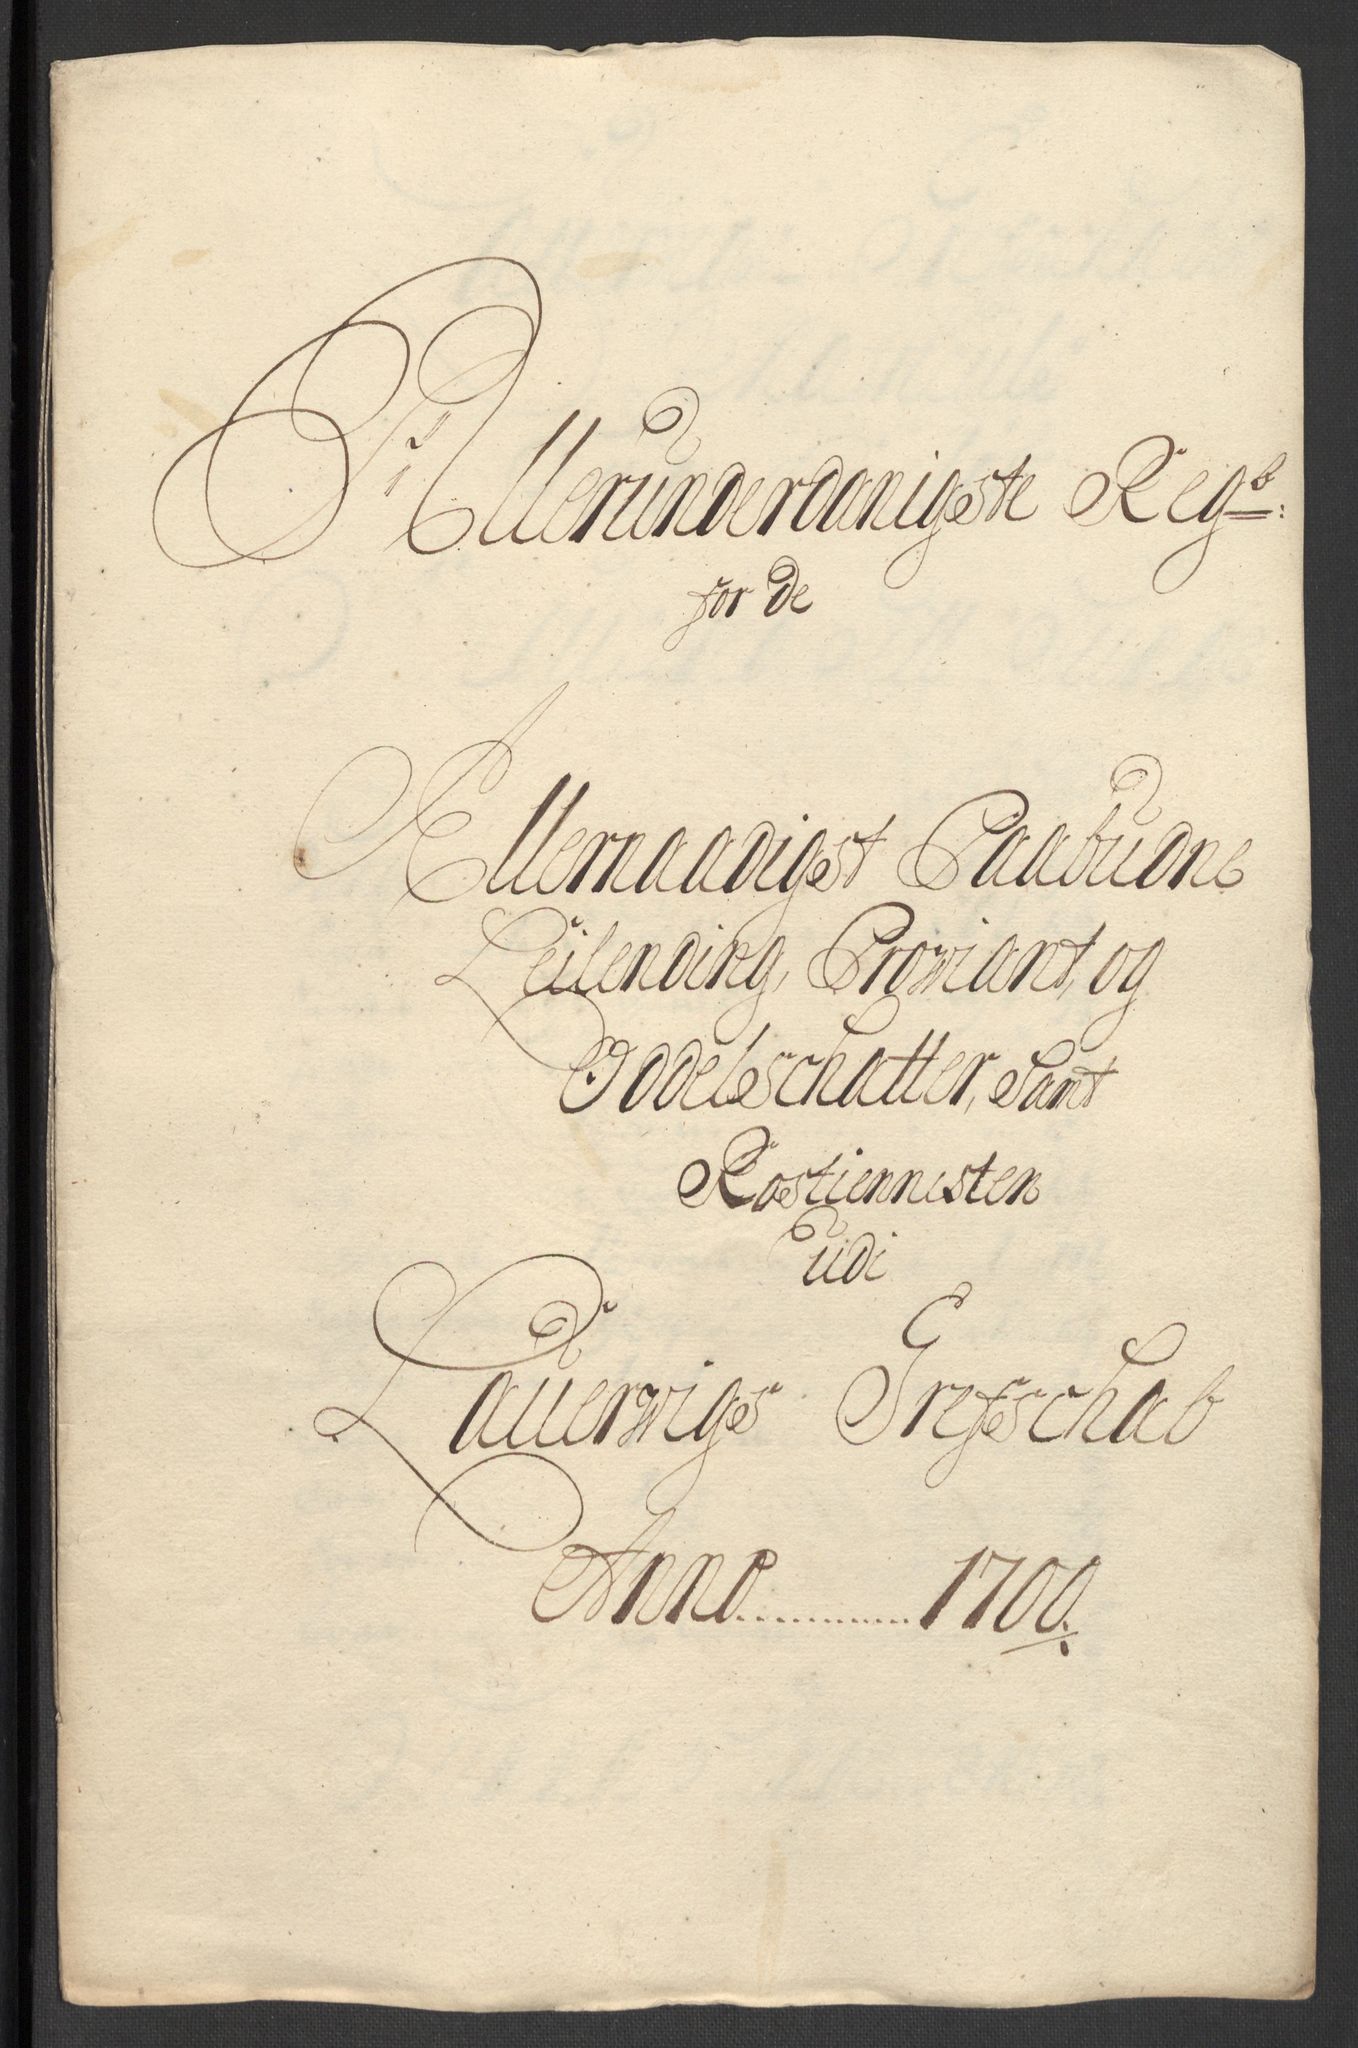 Allerunderdanigste Regb:
for de
Allernaadigst Paabudne
Leilending, Prowiant, og
Oddelsschatter, Samt
Rostiennisten
udi
Lauerwigs Grefschab
Anno.......... 1700.